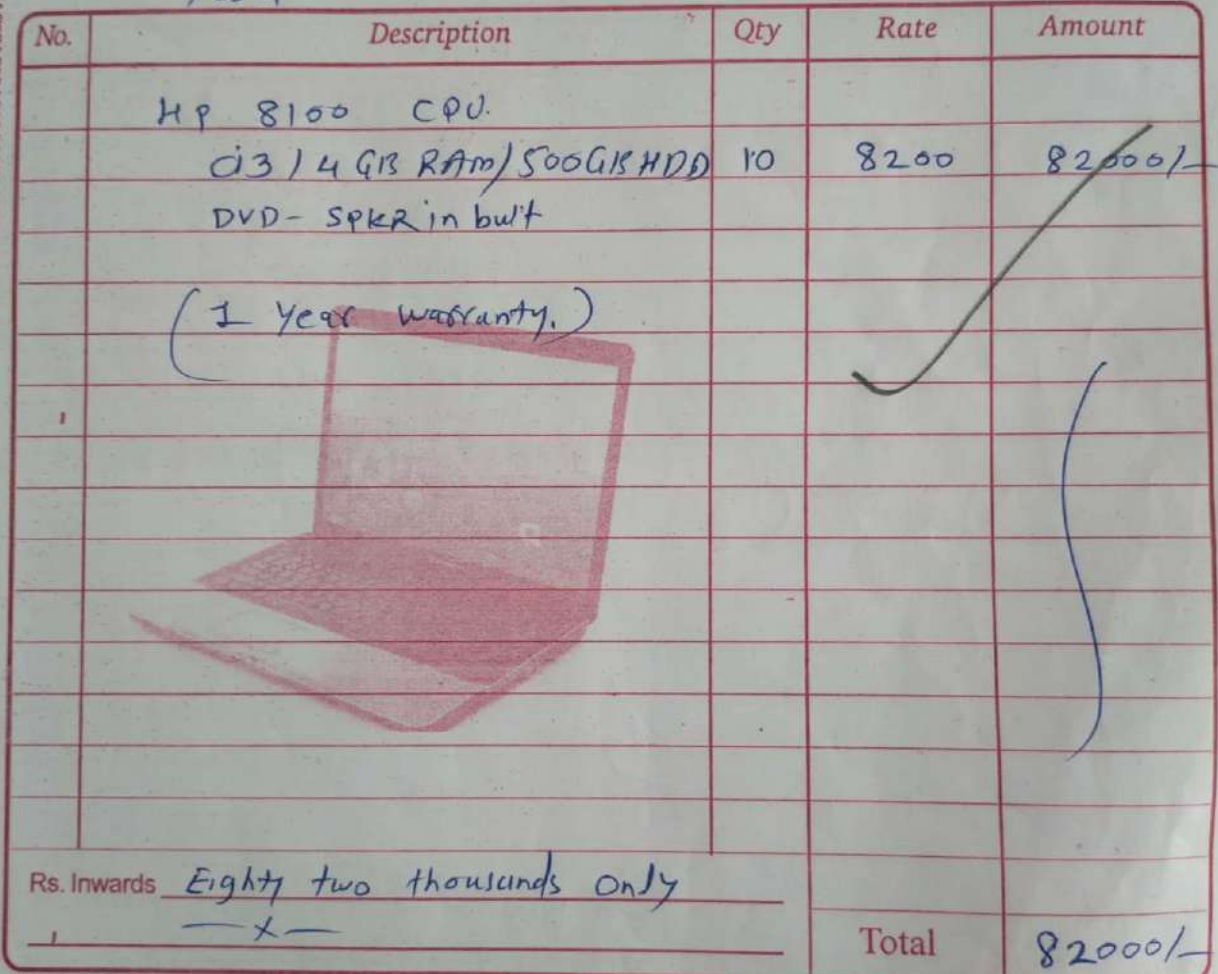 No. Description Qty Rate Amount
HP 8100 CPU.
i3 / 4 GB RAM / 500GB HDD 10 8200 82000/-
DVD - SPKR in built
(1 Year warranty.)
Rs. Inwards Eighty two thousands only
—x—
Total 82000/-